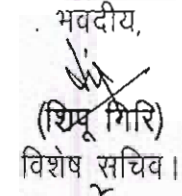 भवदीय,
(शिपू गिरि)
विशेष सचिव।